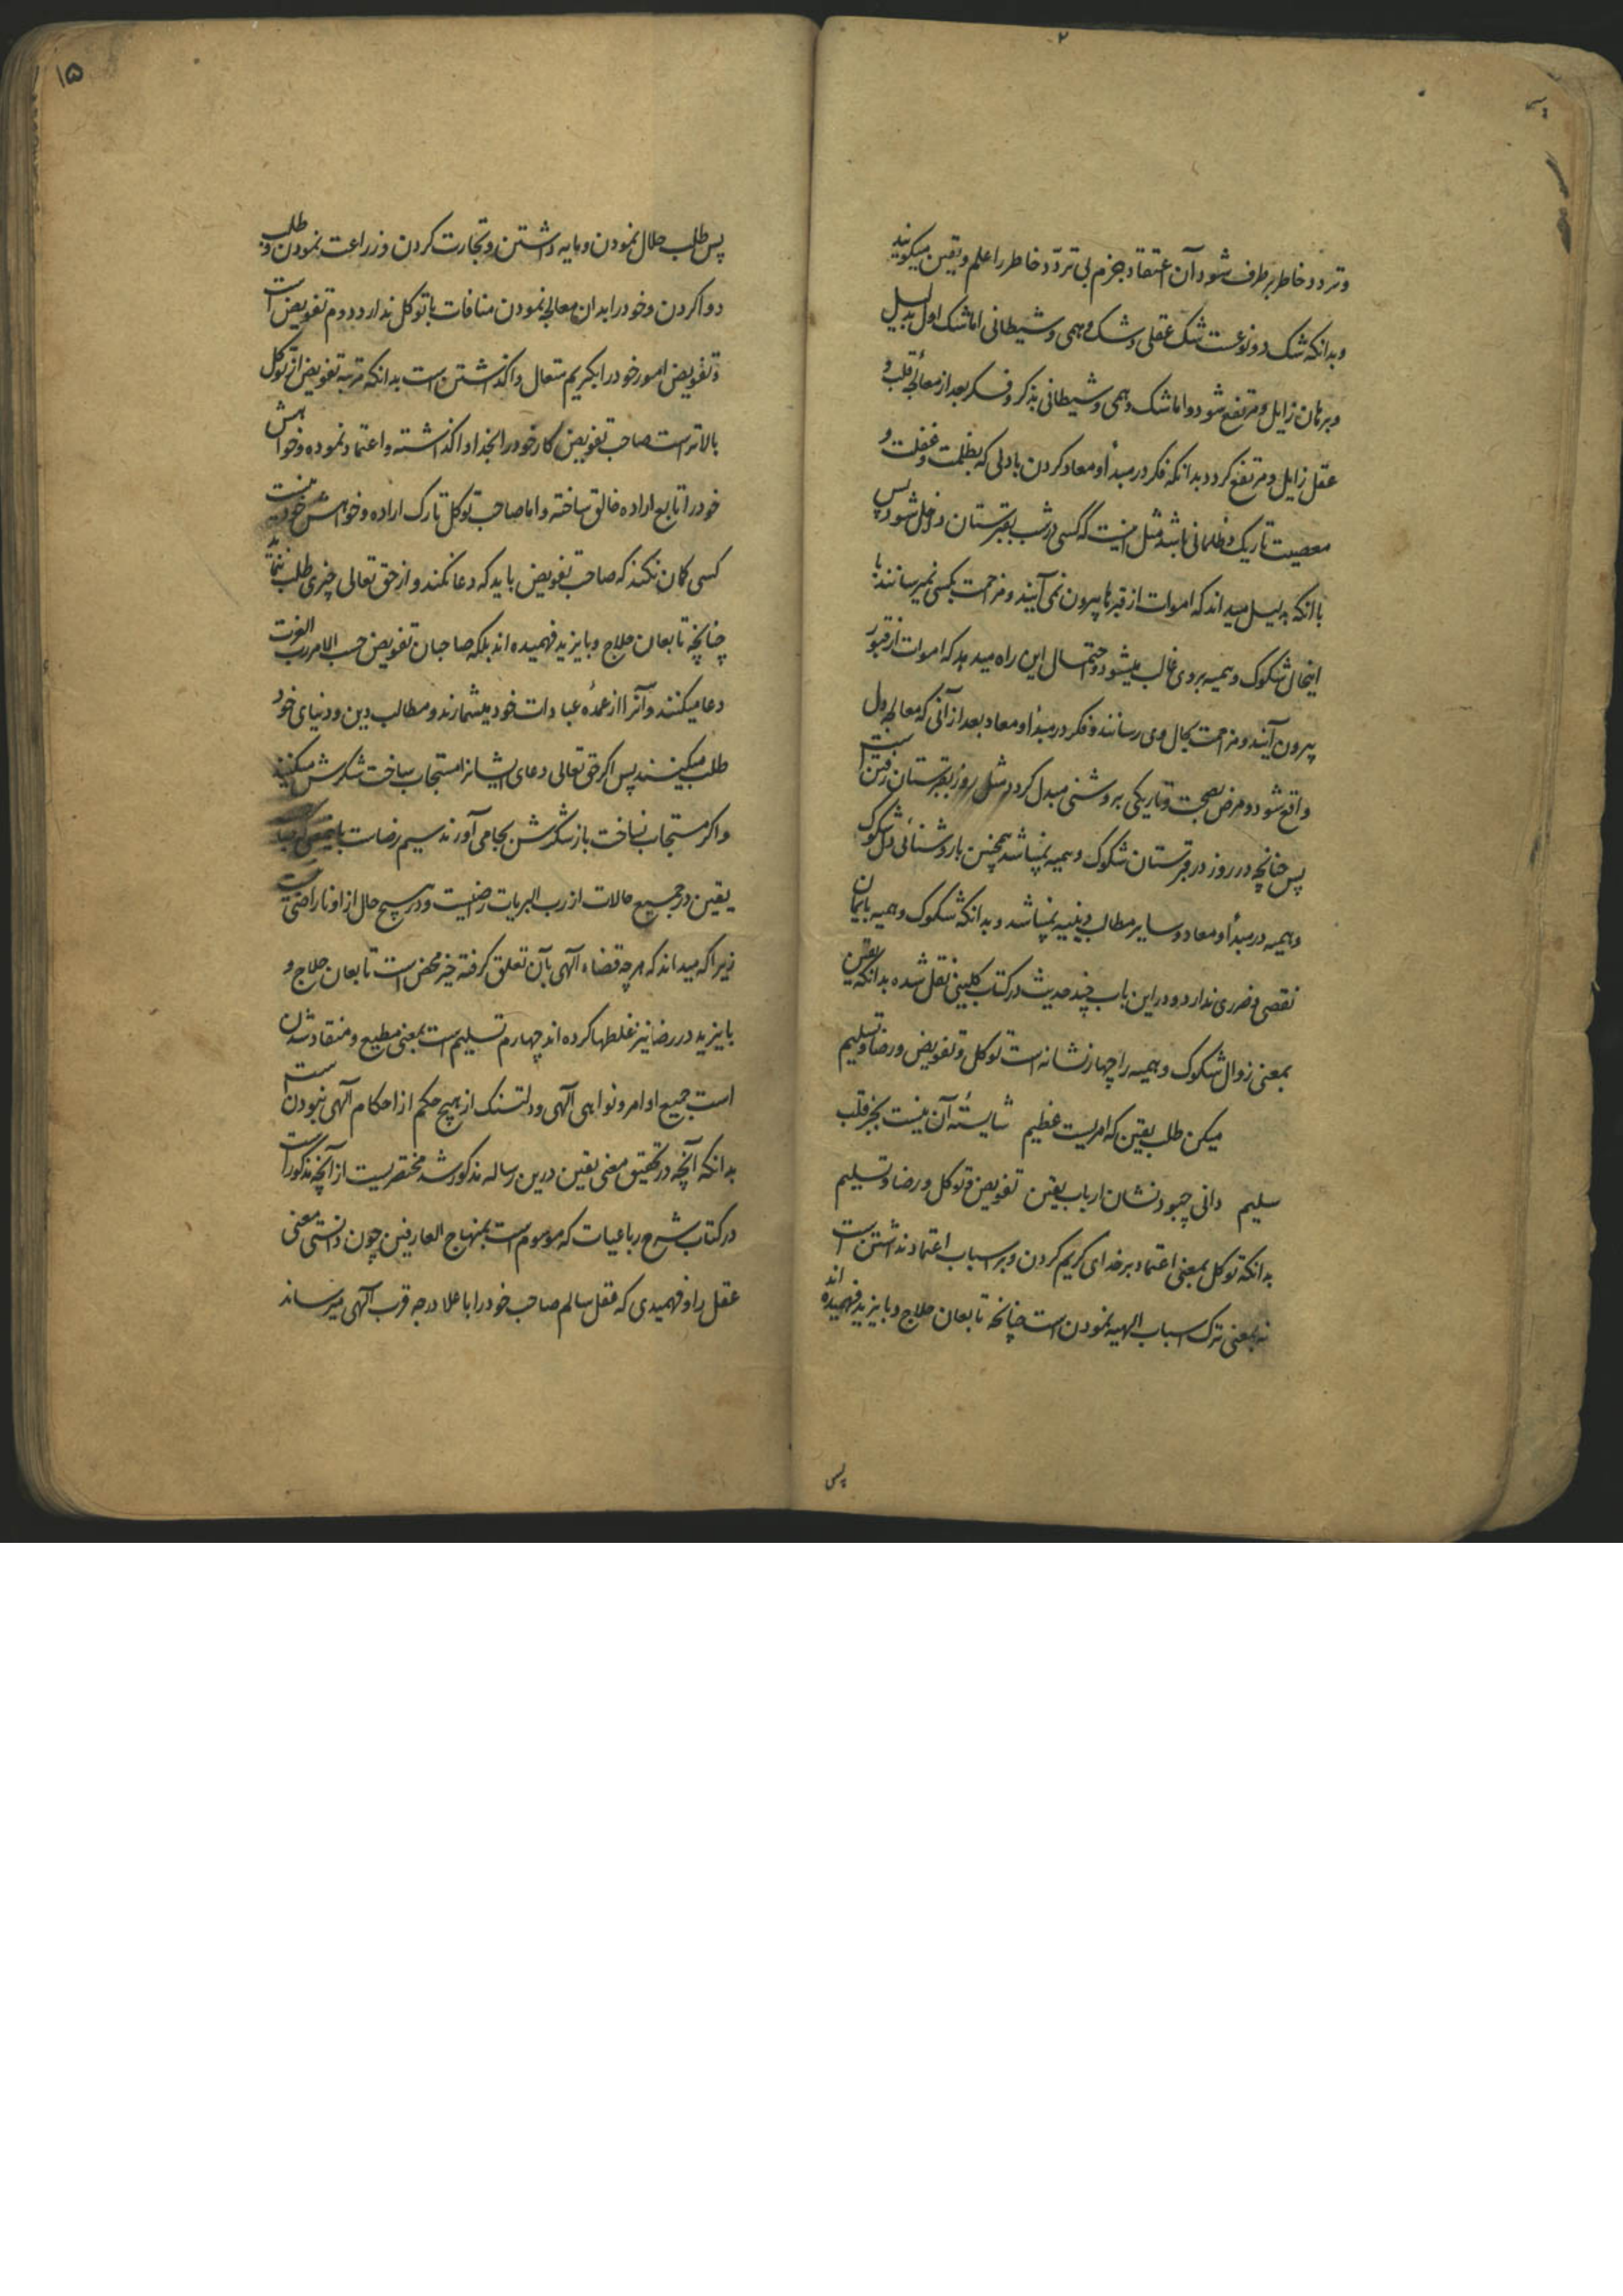 و تردد خاطر برطرف شود آن اعتقاد جزم بی تردّد خاطر را علم و یقین میکویند
و بدانکه شک دو نوعست شک عقلی و شک وهمی و شیطانی اما شک اول بدلیل
و برهان زایل و مرتفع شود و اما شک وهمی و شیطانی بذکر و فکر بعد از معالجهٔ قلب و
عقل زایل و مرتفع کردد بدانکه فکر در مبدأ و معاد کردن با دلی که بظلمت و غفلت و
معصیت تاریک و ظلمانی باشد مثل اینست که کسی در شب بقبرستان داخل شود پس
با انکه بدلیل میداند که اموات از قبرها بیرون نمی آیند و مزاحمت بکسی نمیرسانند با
اینحال شکوک وهمیه بر وی غالب میشود و احتمال این راه میدهد که اموات از قبور
بیرون آیند و مزاحمت بحال وی رسانند و فکر در مبدأ و معاد بعد از آنی که معالجه دل
واقع شود و مرض بصحت و تاریکی بروشنی مبدل کردد مثل روز بقبرستان رفتن است
پس چنانچه در روز در قبرستان شکوک وهمیه نمیباشد همچنین با روشنائی دل شکوک
وهمیه در مبدأ و معاد و سایر مطالب دینیه نمیباشد و بدانکه شکوک وهمیه بایمان
نقصی و ضرری ندارد و در این باب چند حدیث در کتاب کلینی نقل شده بدانکه یقین
بمعنی زوال شکوک وهمیه را چهار نشانه است توکل و تفویض و رضا و تسلیم
میکن طلب یقین که امریست عظیم شایستهٔ آن نیست بجز قلب
سلیم دانی چبود نشان ارباب یقین تفویض و توکل و رضا و تسلیم
بدانکه توکل بمعنی اعتماد بر خدای کریم کردن و بر اسباب اعتماد نداشتن است
نه بمعنی ترک اسباب الهیه نمودن است چنانچه تابعان حلاج و بایزید فهمیده اند
پس
۱۵
پس طلب حلال نمودن و مایه داشتن و تجارت کردن و زراعت نمودن و طلب
دوا کردن و خود را بدان معالجه نمودن منافات با توکل ندارد دوم تفویض است
و تفویض امور خود را بکریم متعال واکذاشتن است بدانکه مرتبه تفویض از توکل
بالاتر است صاحب تفویض کار خود را بخدا واکذاشته و اعتماد نموده و خواهش
خود را تابع اراده خالق ساخته و اما صاحب توکل تارک اراده و خواهش خود نیست
کسی کمان نکند که صاحب تفویض باید که دعا نکند و از حق تعالی چیزی طلب ننماید
چنانچه تابعان حلاج و بایزید فهمیده اند بلکه صاحبان تفویض حسب الامر رب العزت
دعا میکنند و آنرا از عمدهٔ عبادات خود میشمارند و مطالب دین و دنیای خود
طلب میکنند پس اکر حق تعالی دعای ایشانرا مستجاب ساخت شکرش میکنند
و اکر مستجاب نساخت باز شکرش بجا می آورند سیم رضاست
یقین در جمیع حالات از رب البریات راضیست و در هیچ حال از او ناراضی نیست
زیرا که میداند که هر چه قضاء آلهی بآن تعلق کرفته خیر محض است تابعان حلاج و
بایزید در رضا نیز غلطها کرده اند چهارم تسلیم است بمعنی مطیع و منقاد شدن
است جمیع اوامر و نواهی آلهی و دلتنک از هیچ حکم از احکام آلهی نبودن است
بدانکه آنچه در تحقیق معنی یقین درین رساله مذکور شد مختصریست از آنچه مذکور است
در کتاب شرح رباعیات که موسوم است بمنهاج العارفین چون دانستی معنی
عقل را و فهمیدی که عقل سالم صاحب خود را باعلا درجه قرب آلهی میرساند